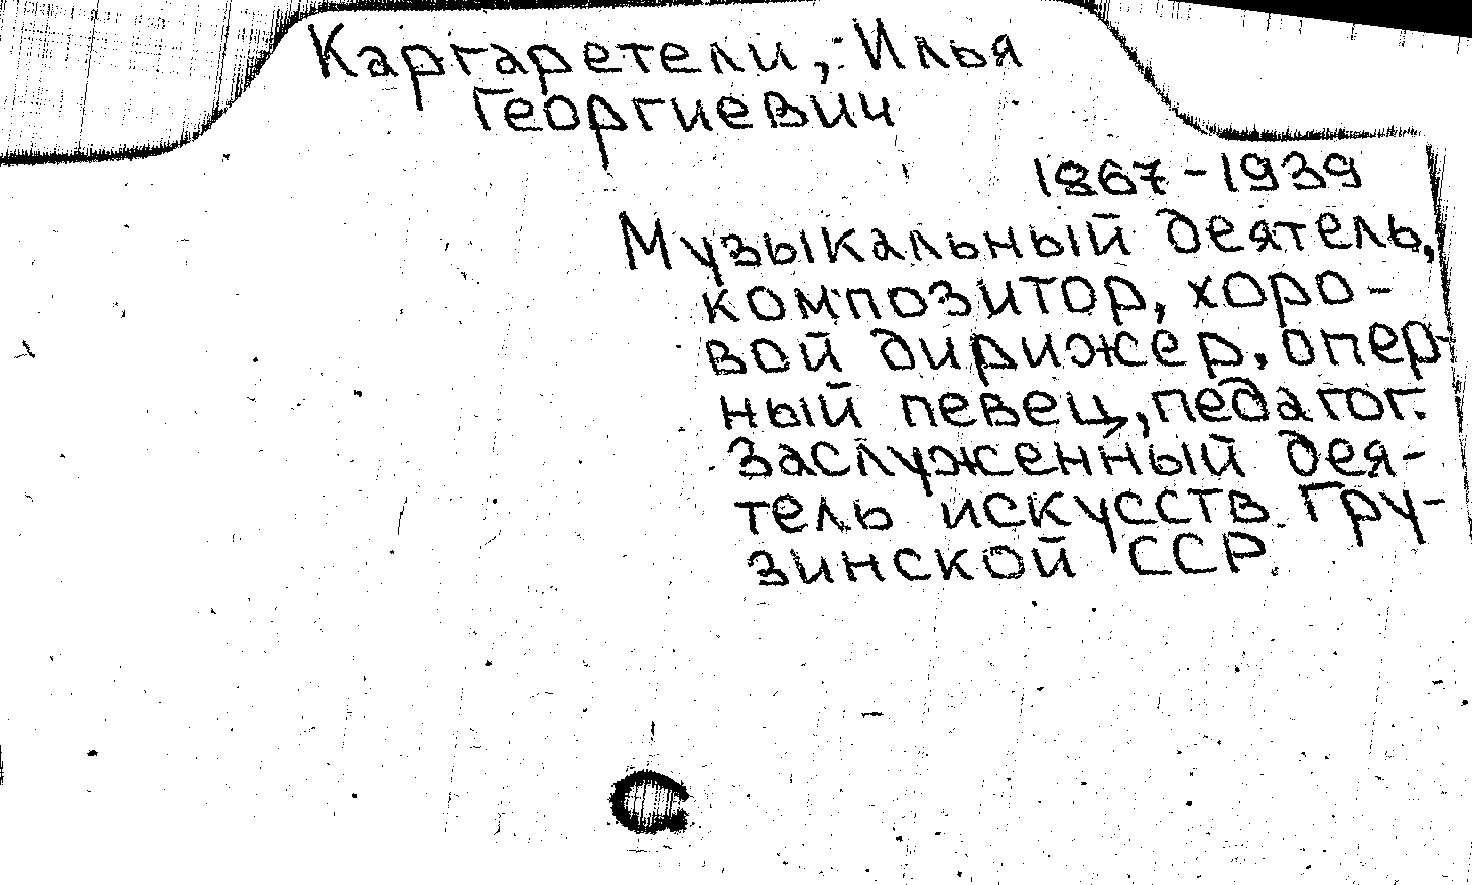 Каргаретели, Илья
Георгиевич
1867-1939
Музыкальный деятель,
композитор, хоро-
вой дирижер, опер-
ный певец, педагог.
Заслуженный дея-
тель искусств Гру-
зинской ССР.